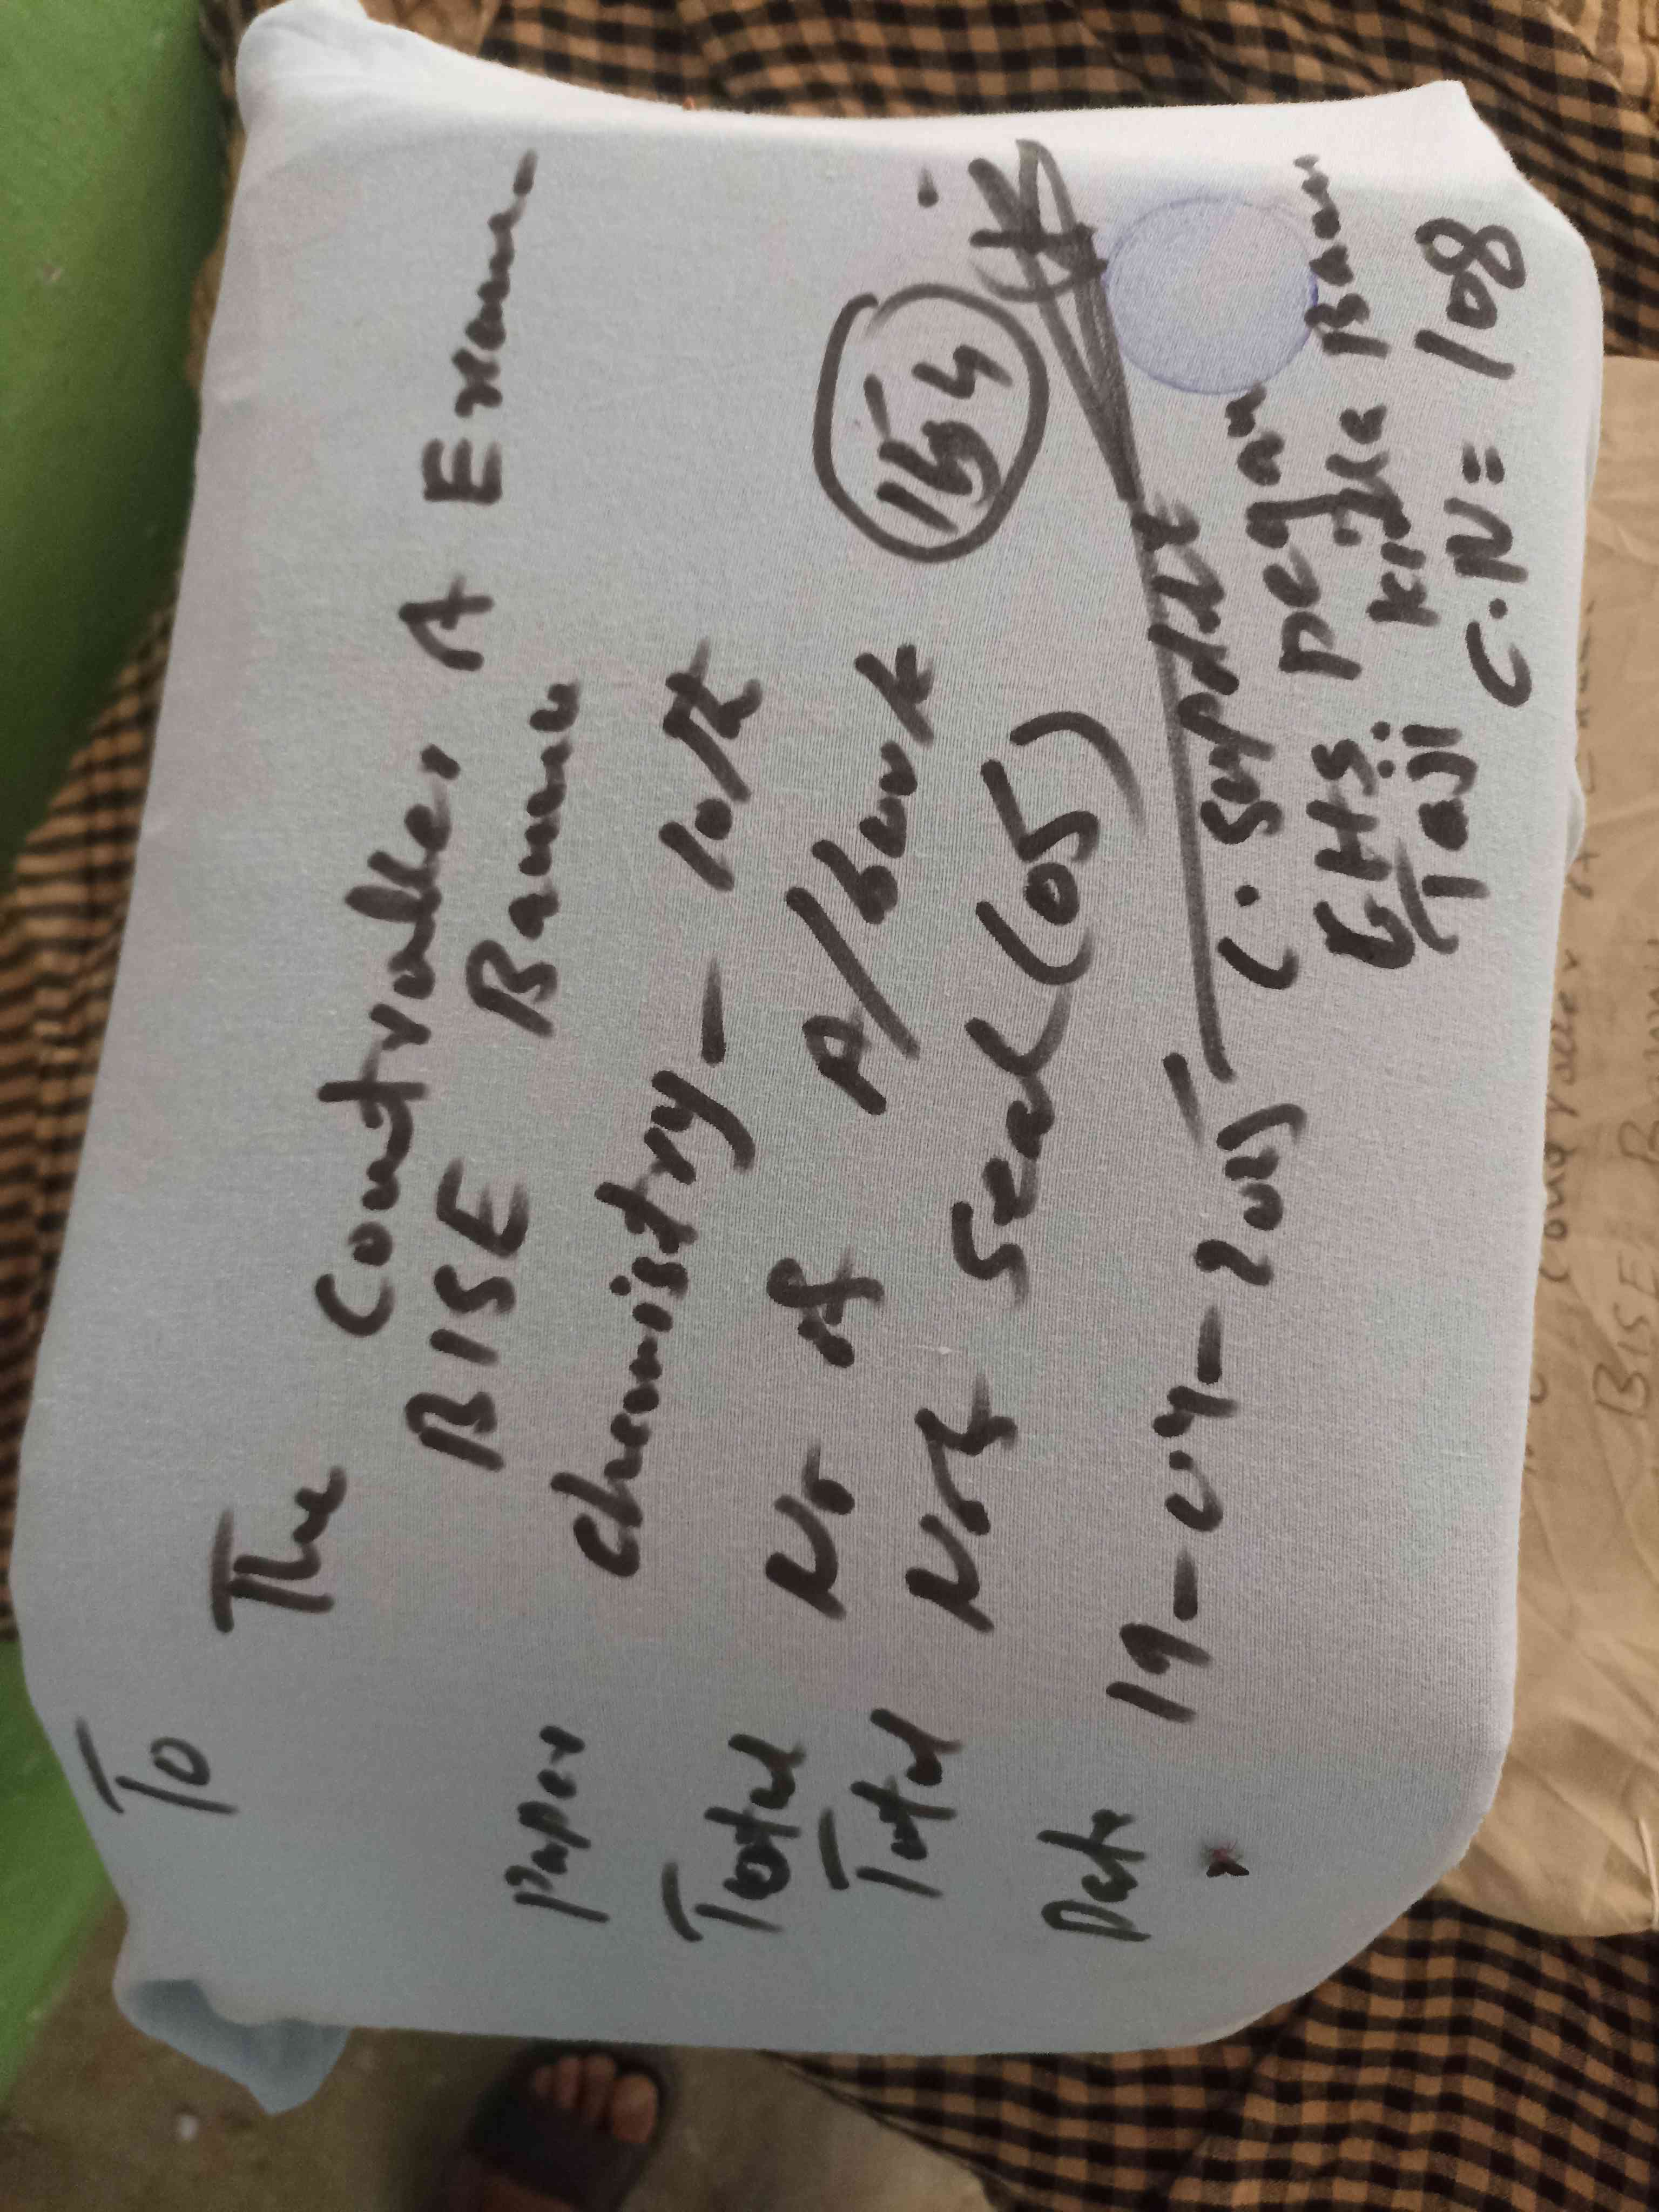 To
The
Controller A Exam
BISE Bannu
Paper Chemistry - 10th
Total No of A/book 164
Total No of Seal (05)
Date 19-04-2025
C. Supdtt
GHS Degan
Taji Killa Bannu
C.N= 108
BISE Bannu